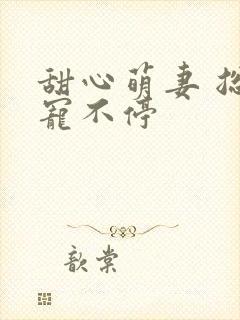 甜心萌妻
宠不停
歆棠